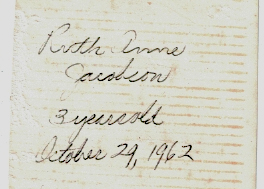 Ruth Anne
Jacobson
3 years old
October 29, 1962